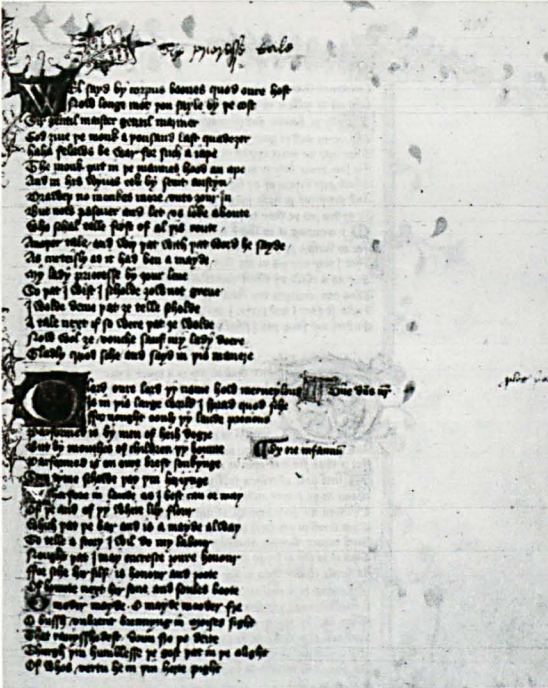 The prioresse tale
Wel sayd by corpus bones quod oure host
Nold longe mot þou sayle by þe cost
Sir gentil maister gentil mariner
God ȝiue þe monk a þousand last quad ȝer
haha felaws be war for such a iape
The monk put in þe mannes hood an ape
And in his wyues eek by seint austyn
Draweþ no monkes more vnto ȝour in
But now passouer and let vs loke aboute
Who schal telle first of al þis route
Anoþer tale and wiþ þat word he sayde
As curteisly as it had ben a mayde
My lady prioresse by ȝour leue
So þat I wist I scholde ȝold not greue
I wolde deme þat ȝe telle scholde
A tale next if so were þat ȝe wolde
Now wol ȝe vouche sauf my lady deere
Gladly quod sche and sayd in þis manere
O lord oure lord þy name how merueylous
Is in þis large world I sprad quod sche
ffor nought oonly þy laude precious
Parformed is by men of heih degre
But by mouthes of children þy bounte
Parformed is on oure brest soukynge
Som tyme schewe þay þin heriynge
Wherfore in laude as I best can or may
Of þe and of þy white lily flour
Which þat þe bar and is a mayde alway
To telle a story I wil do my labour
Nought þat I may encresce youre honour
ffor sche hir silf is honour and roote
Of bounte next hir sone and soules boote
O moder mayde O mayde moder fre
O bussh vnbrent brennyng in moyses sight
That rauysshedest doun fro þe deite
Thurgh þin humblesse þe gost þat in þe alight
Of whos vertu he in þin herte pight